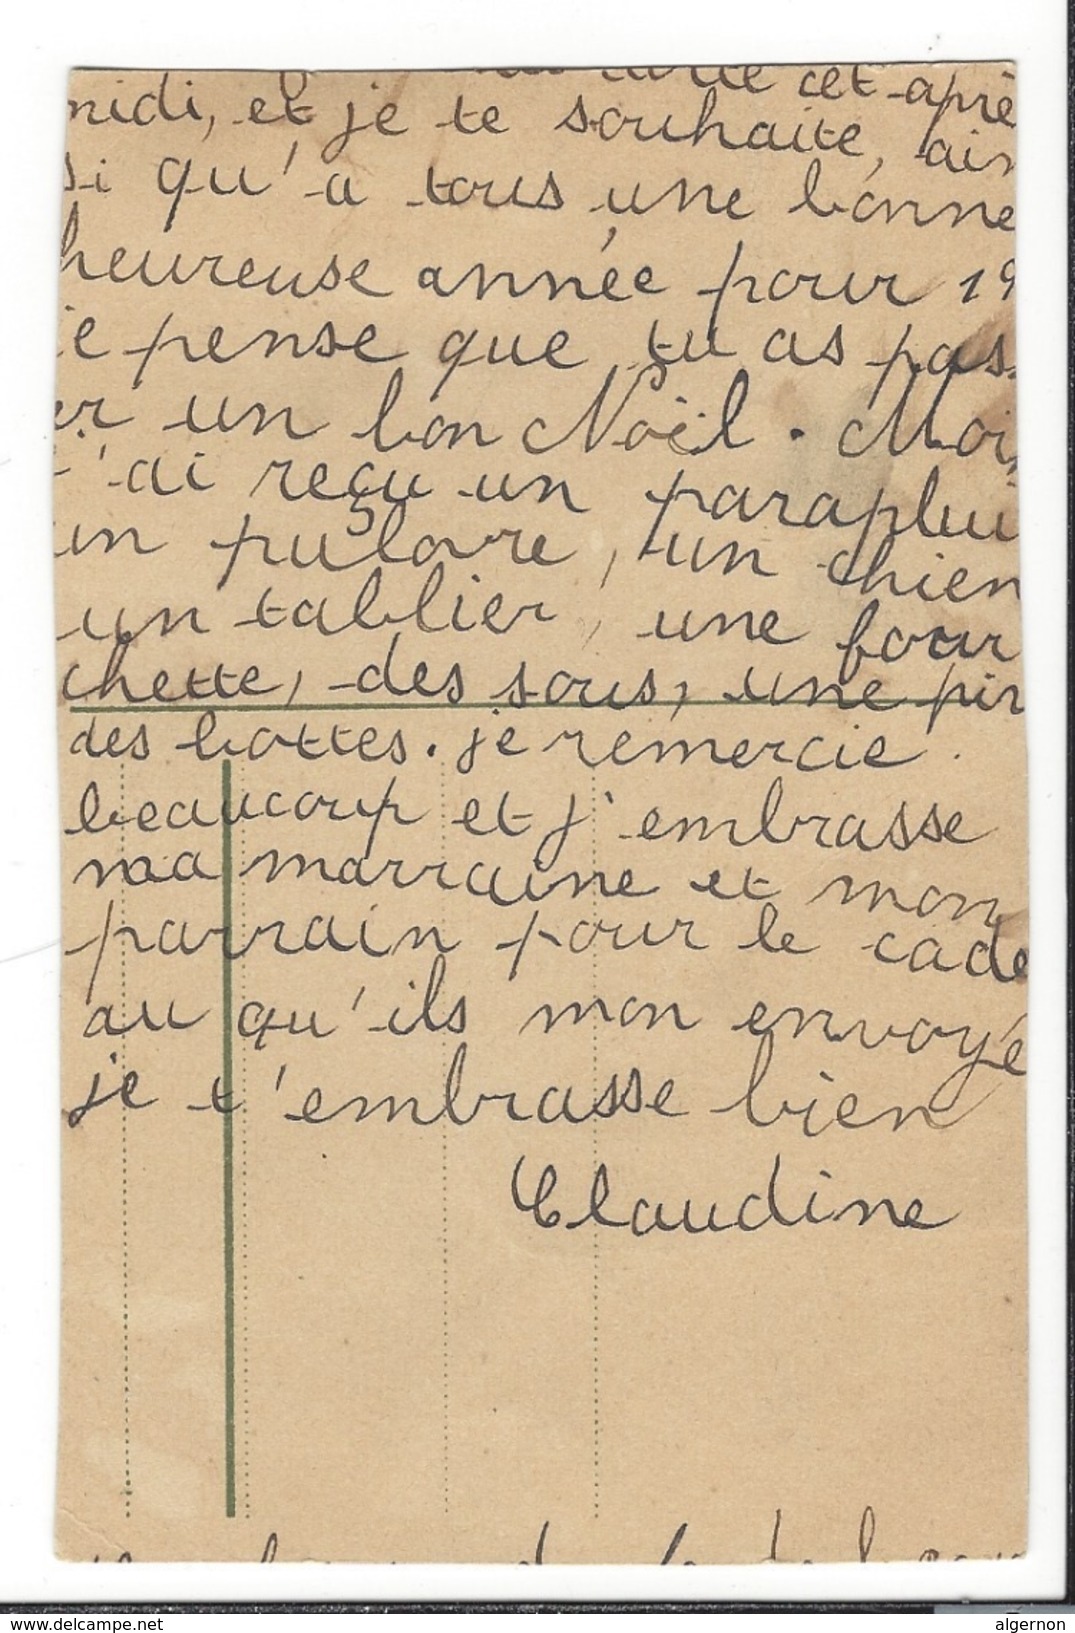 carte cet aprè
midi, et je te souhaite, ain
si qu'a tous une bonne
heureuse année pour 19
je pense que tu as pas
er un bon Noël. Moi,
j'ai reçu un paraplui
un pulovre, un chien
un tablier, une four
chette, des sous, une pir
des bottes. je remercie
beaucoup et j'embrasse
ma marraine et mon
parrain pour le cade
au qu'ils mon envoyé
je t'embrasse bien
Claudine
www.delcampe.net
algernon